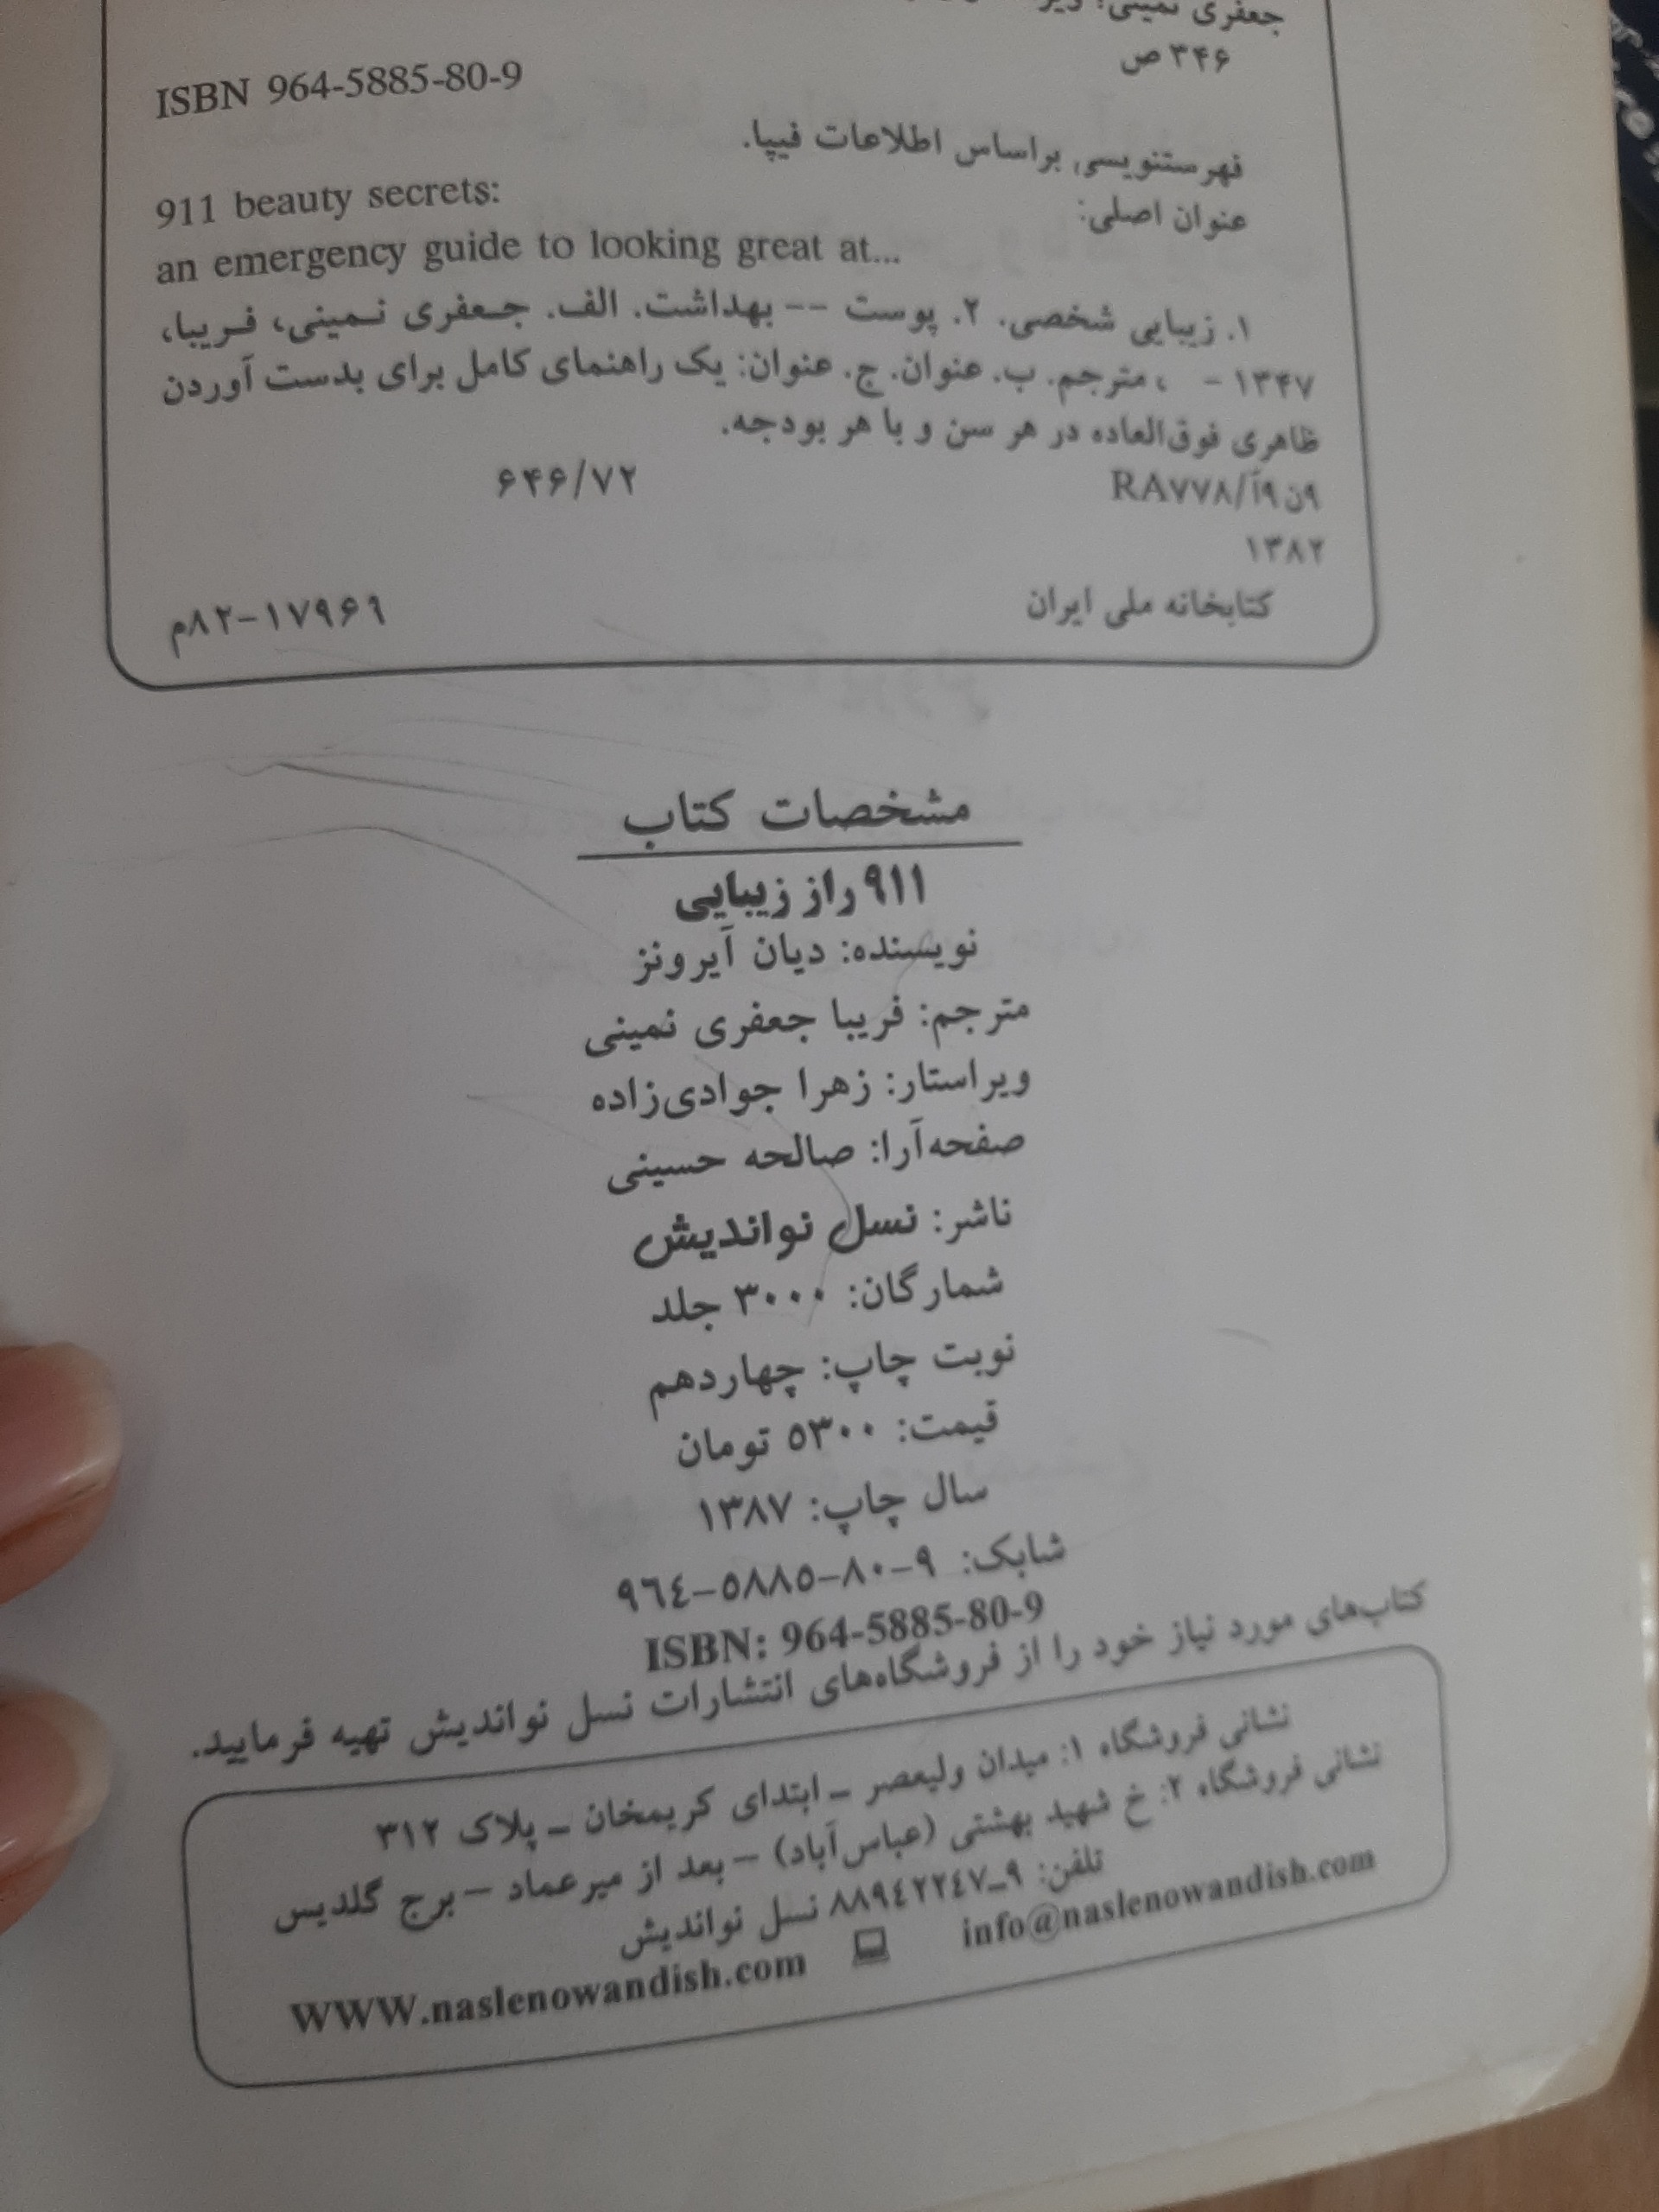 جعفری نمینی؛
۳۴۶ ص
ISBN 964-5885-80-9
فهرستنویسی براساس اطلاعات فیپا.
عنوان اصلی:
911 beauty secrets:
an emergency guide to looking great at...
۱. زیبایی شخصی. ۲. پوست -- بهداشت. الف. جعفری نمینی، فریبا،
۱۳۴۷ - ، مترجم. ب. عنوان. ج. عنوان: یک راهنمای کامل برای بدست آوردن
ظاهری فوق‌العاده در هر سن و با هر بودجه.
۹ن۹آ/RA۷۷۸ ۶۴۶/۷۲
۱۳۸۲
کتابخانه ملی ایران ۸۲-۱۷۹۶۹م
مشخصات کتاب
۹۱۱ راز زیبایی
نویسنده: دیان آیرونز
مترجم: فریبا جعفری نمینی
ویراستار: زهرا جوادی‌زاده
صفحه‌آرا: صالحه حسینی
ناشر: نسل نواندیش
شمارگان: ۳۰۰۰ جلد
نوبت چاپ: چهاردهم
قیمت: ۵۳۰۰ تومان
سال چاپ: ۱۳۸۷
شابک: ۹-۸۰-۵۸۸۵-۹٦٤
ISBN: 964-5885-80-9
کتاب‌های مورد نیاز خود را از فروشگاه‌های انتشارات نسل نواندیش تهیه فرمایید.
نشانی فروشگاه ۱: میدان ولیعصر ـ ابتدای کریمخان ـ پلاک ۳۱۲
نشانی فروشگاه ۲: خ شهید بهشتی (عباس‌آباد) – بعد از میرعماد – برج گلدیس
تلفن: ۹ـ۸۸۹٤۲۲٤۷ نسل نواندیش
WWW.naslenowandish.com info@naslenowandish.com